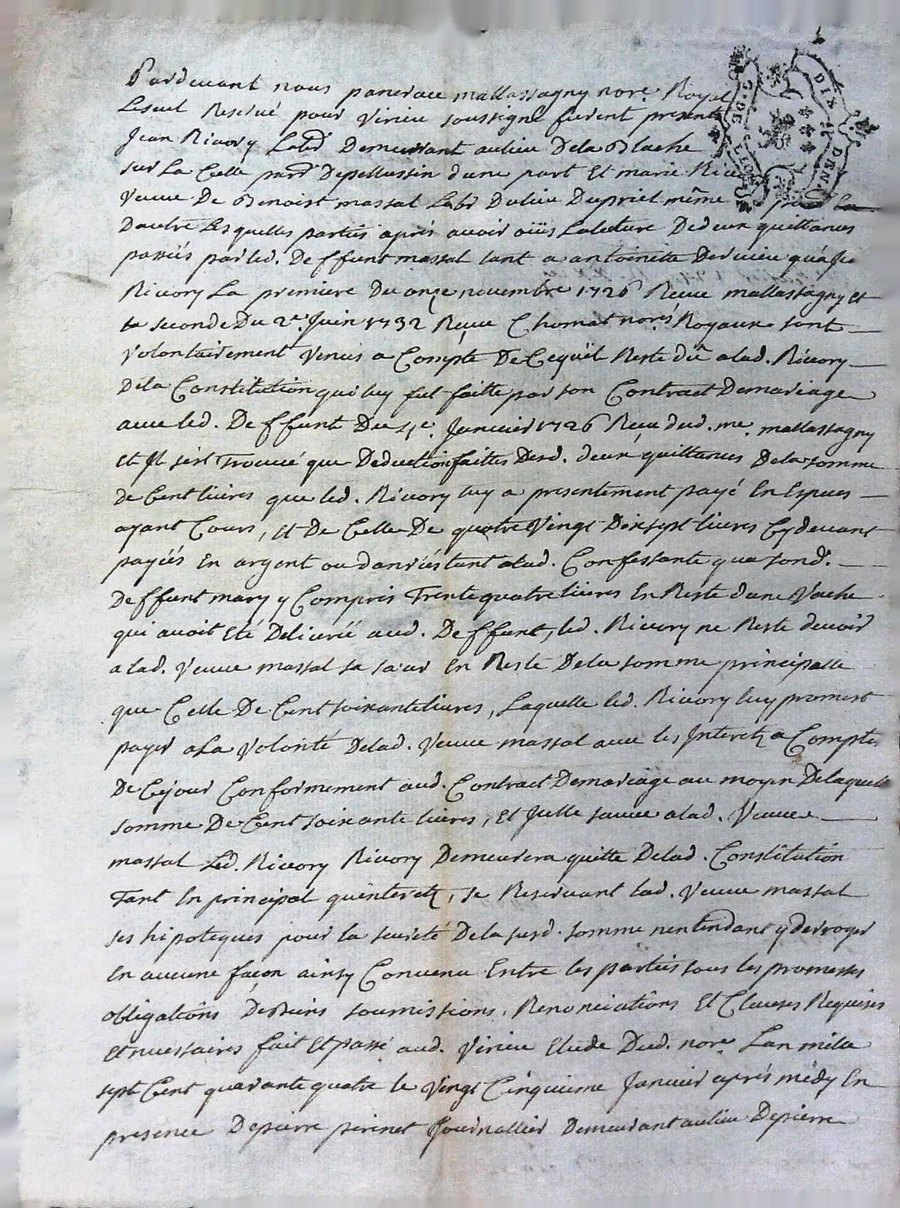 Pardevant nous panerace mallassagny nore. Royal
Leseul Reservé pour Virieu soussigné furent presents
Jean Rivory Labr Demeurant aulieu Dela Blache
sur La Celle parr. Depellussin dune part Et marie
Veuve De Benoist massal Labr Dulieu Dupriel même
Dautre Lesquelles parties aprés avoir oüis Lalecture Dedeux quittances
passés parled. Deffunt massal tant a antoinette Dervieu qu'a
Rivory La premiere Du onze novembre 1726 Reçue mallassagny et
la seconde Du 2e. Juin 1732 Reçue Chomat nores Royaux sont
volontairement venus a Compte De Cequil Reste dû alad. Rivory
Dela Constitution qui luy fut faitte par son Contract Demariage
avec led. Deffunt Du 4e. Janvier 1726 Receu dud. me. mallassagny
et Il sest Trouvé que Deduction faittes Desd. deux quittances Dela somme
de Cent livres que led. Rivory luy a presentement payé En Especes
ayant Cours, et De Celle De quatre Vingt Dix sept livres Cydevant
payiés En argent ou danrés tant alad. Confessante qua sond.
Deffunt mary y Compris Trente quatre livres En Reste dune Vache
qui avoit Eté Delivrée aud. Deffunt, led. Rivory ne Reste devoir
alad. Veuve massal sa sœur En Reste Dela somme principalle
que Celle De Cent soixante livres, Laquelle led. Rivory luy promest
payer ala Volonté Delad. Veuve massal avec les Interetz a Compter
De Cejour Conformement aud. Contract Demariage au moyen Delaquelle
somme De Cent soixante livres, et Jcelle sauve alad. Veuve
massal Led. Rivory Rivory Demeurera quitte Delad. Constitution
Tant En principal quinteretz, se Reservant lad. Veuve massal
ses hipoteques pour la sureté Dela susd. somme nentendant y derroger
En aucune façon ainsy Convenu Entre les parties sous les promesses
obligations Desbiens soumissions, Renonciations Et Clauses Requises
et necessaires fait Et passé aud. Virieu Etude Dud. nore. Lan mila
sept Cent quarante quatre le Vingt Cinquieme Janvier aprés médy En
presence Depierre perinet Journallier Demeurant aulieu Depierre